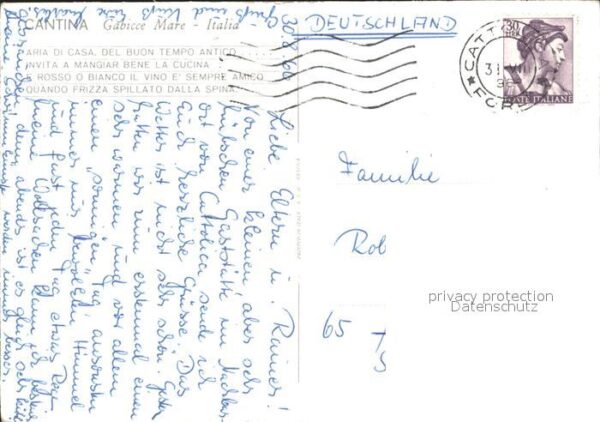 CANTINA Gabicce Mare - Italia
ARIA DI CASA, DEL BUON TEMPO ANTICO
INVITA A MANGIAR BENE LA CUCINA
E ROSSO O BIANCO IL VINO E' SEMPRE AMICO
QUANDO FRIZZA SPILLATO DALLA SPINA
DEUTSCHLAND
30
POSTE ITALIANE
30.8.66
Liebe Eltern u. Rainer!
Von einer kleinen, aber sehr
hübschen Gaststätte im Nachbar
ort von Cattolica sende ich
Euch herzliche Grüsse. Das
Wetter ist nicht sehr schön. Gestern
hatten wir zum erstenmal einen
sehr warmen und vor allem
einen "sonnigen" Tag ansonsten
immer nur bewölkten Himmel
und fast jeden Tag etwas Regen
meine Wollsachen kann ich
denn abends ist es
Familie
Rob
65
privacy protection
Datenschutz